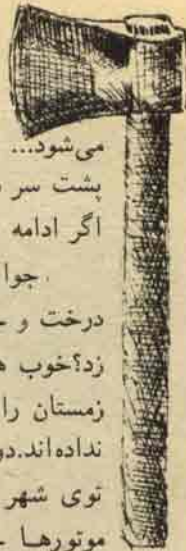 می‌شود...
پشت سر
اگر ادامه
جوا
درخت و
زد؟خوب
زمستان را
نداده‌اند.دو
توی شهر
موتورها